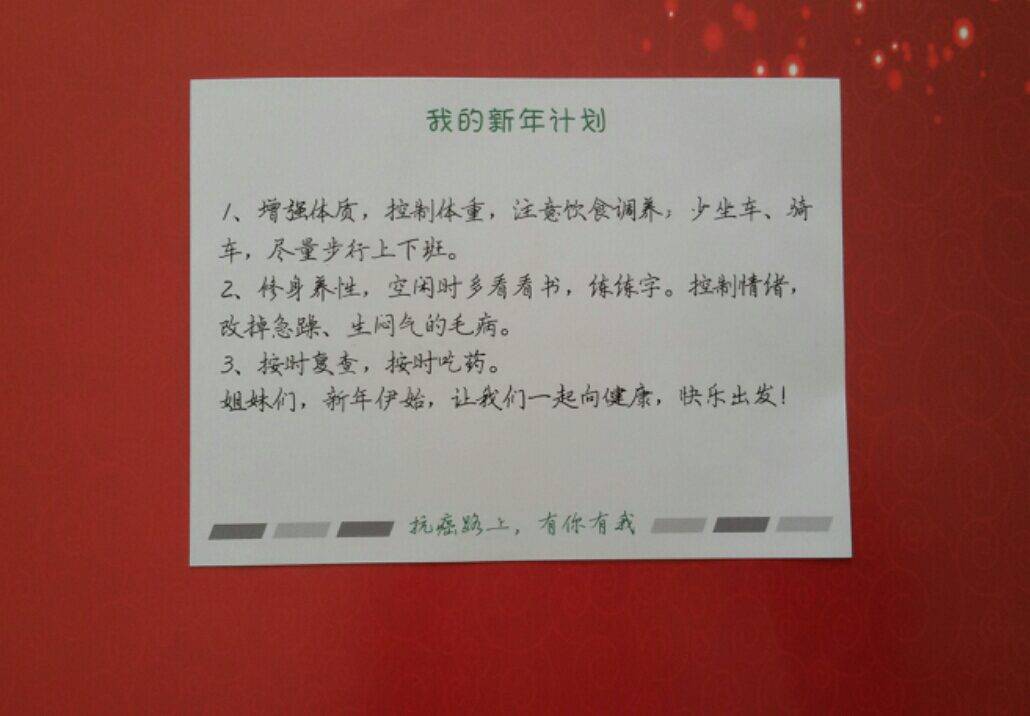 我的新年计划
1、增强体质，控制体重，注意饮食调养；少坐车、骑
车，尽量步行上下班。
2、修身养性，空闲时多看看书，练练字。控制情绪，
改掉急躁、生闷气的毛病。
3、按时复查，按时吃药。
姐妹们，新年伊始，让我们一起向健康，快乐出发！
抗癌路上，有你有我